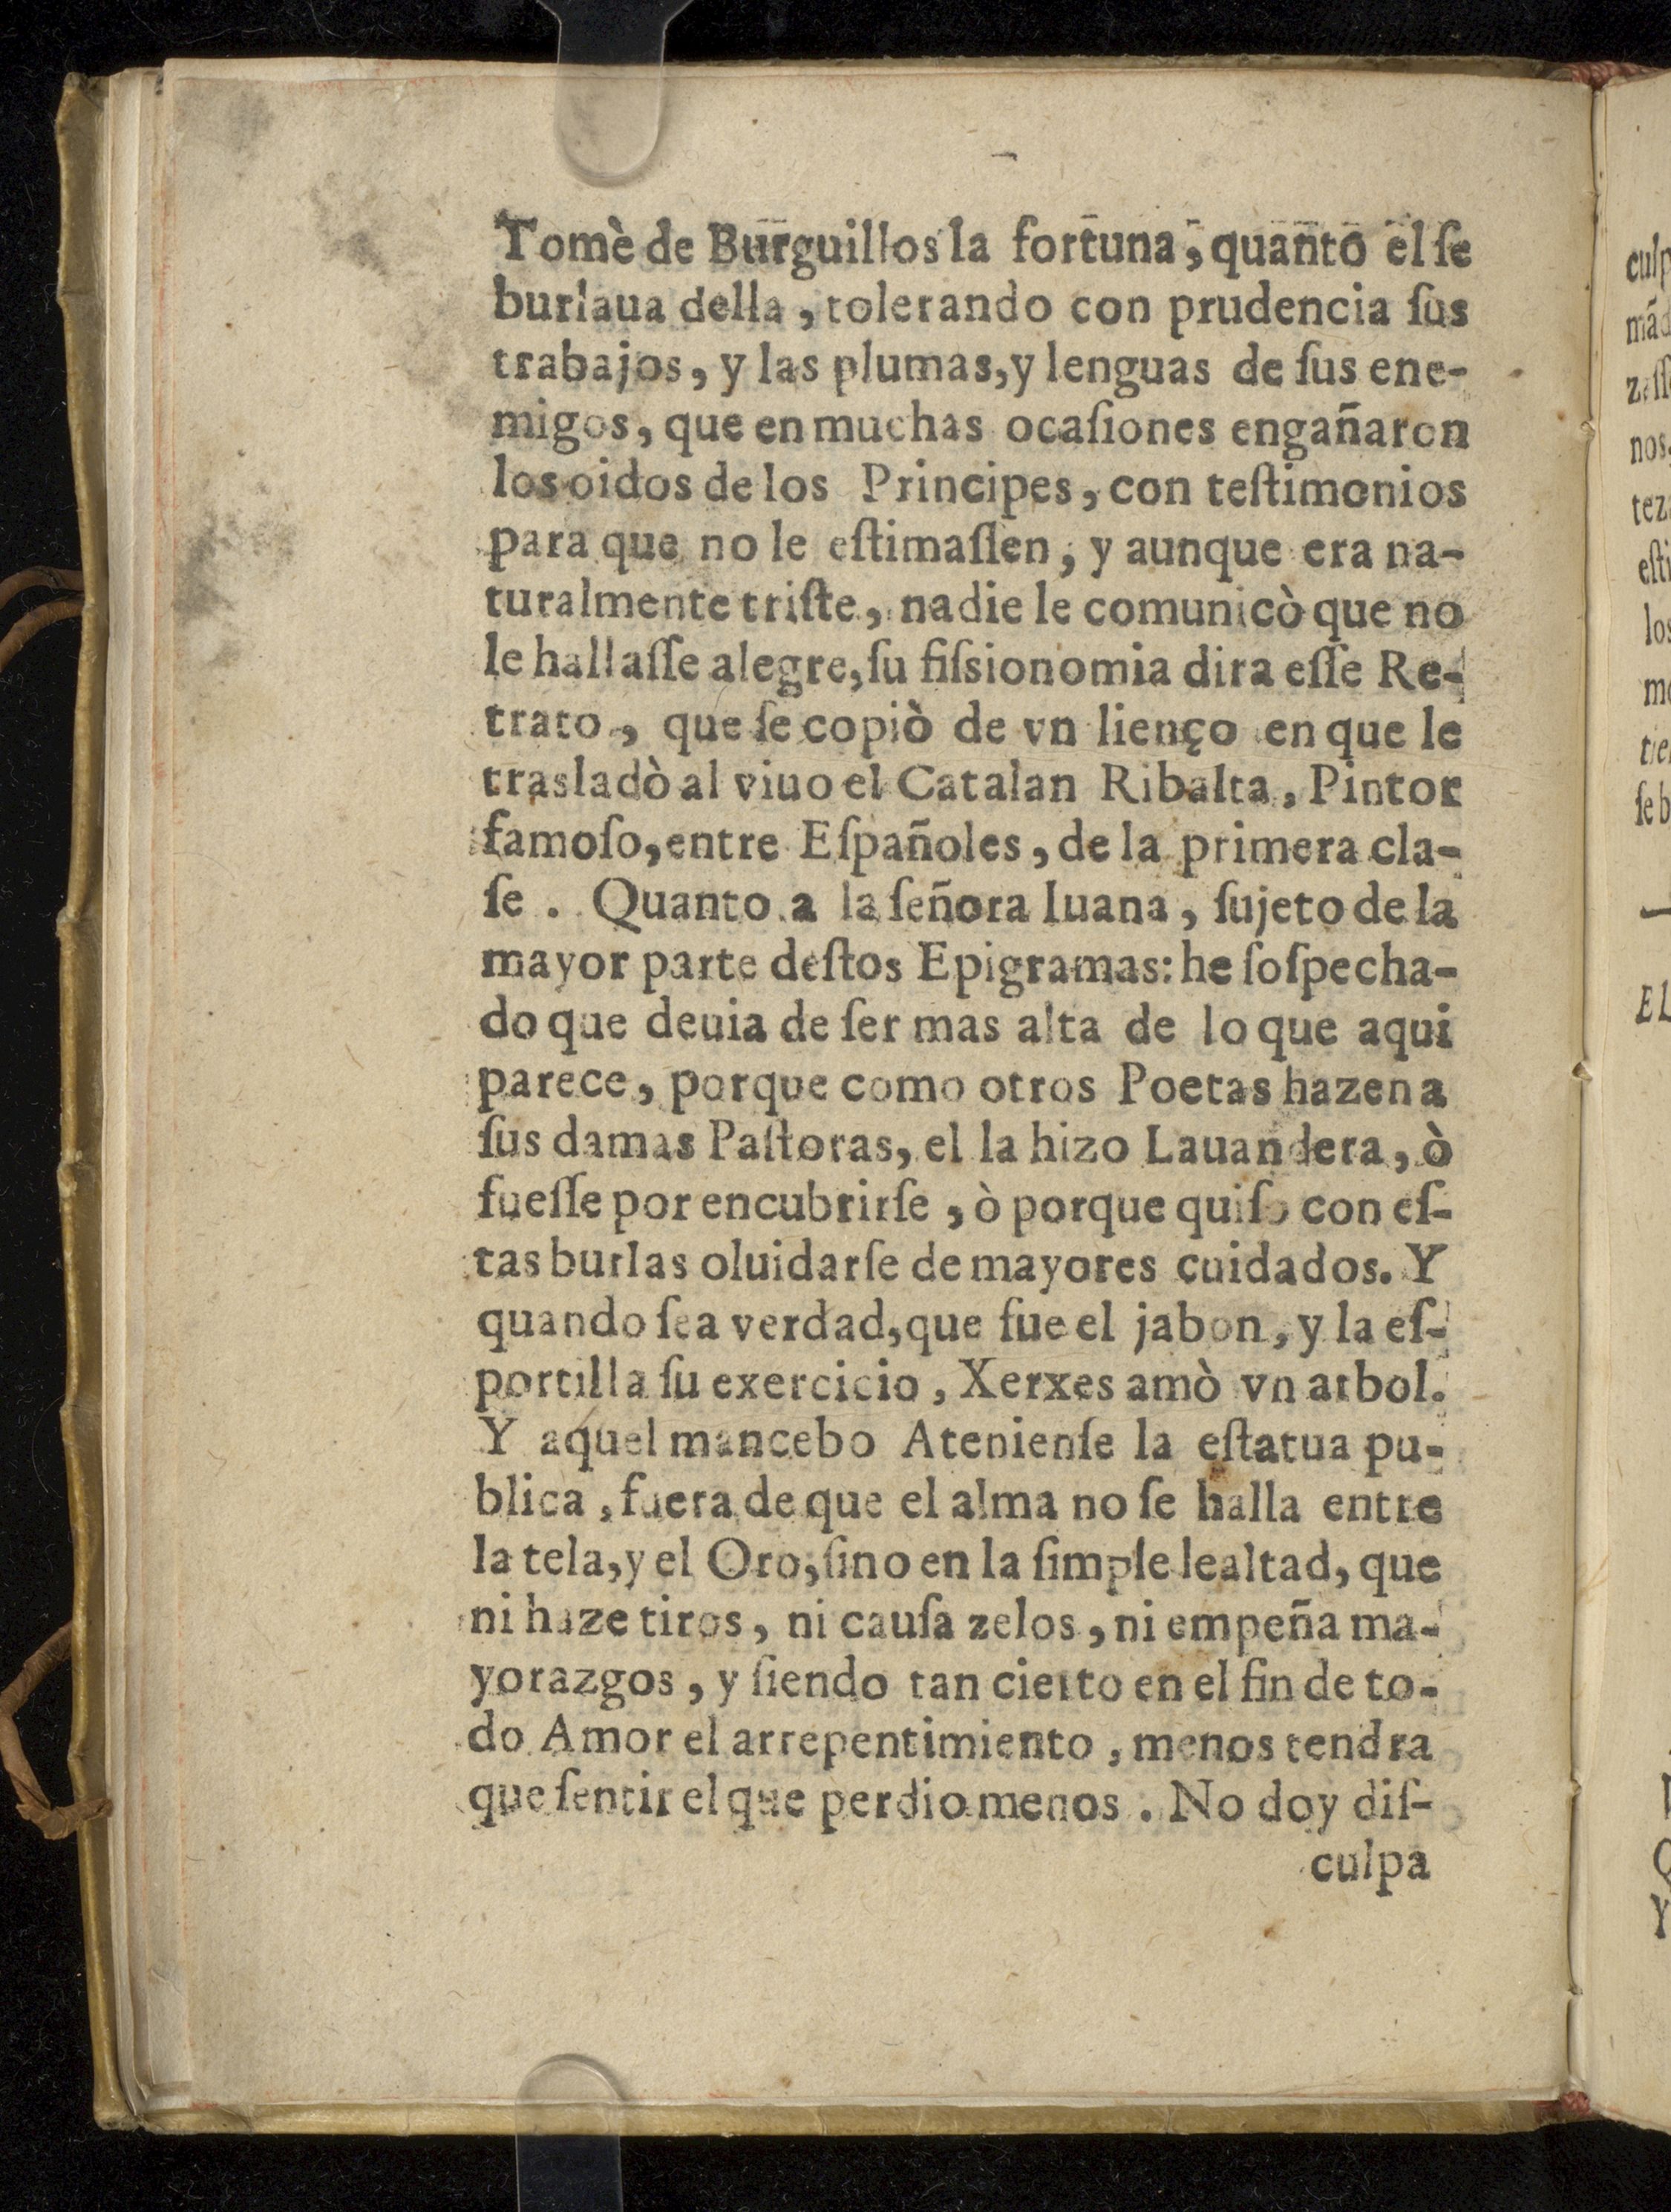 Tomè de Burguillos la fortuna, quanto el ſe
burlaua della, tolerando con prudencia ſus
trabajos, y las plumas, y lenguas de ſus ene-
migos, que en muchas ocaſiones engañaron
los oidos de los Principes, con teſtimonios
para que no le eſtimaſſen, y aunque era na-
turalmente triſte, nadie le comunicò que no
le hallaſſe alegre, ſu fiſsionomia dira eſſe Re-
trato, que ſe copiò de vn lienço en que le
trasladò al viuo el Catalan Ribalta, Pintor
famoſo, entre Eſpañoles, de la primera cla-
ſe. Quanto a la ſeñora Iuana, ſujeto de la
mayor parte deſtos Epigramas: he ſoſpecha-
do que deuia de ſer mas alta de lo que aqui
parece, porque como otros Poetas hazen a
ſus damas Paſtoras, el la hizo Lauandera, ò
fueſſe por encubrirſe, ò porque quiſo con eſ-
tas burlas oluidarſe de mayores cuidados. Y
quando ſea verdad, que fue el jabon, y la eſ-
portilla ſu exercicio, Xerxes amò vn arbol.
Y aquel mancebo Atenienſe la eſtatua pu-
blica, fuera de que el alma no ſe halla entre
la tela, y el Oro, ſino en la ſimple lealtad, que
ni haze tiros, ni cauſa zelos, ni empeña ma-
yorazgos, y ſiendo tan cierto en el fin de to-
do Amor el arrepentimiento, menos tendra
que ſentir el que perdio menos. No doy diſ-
culpa